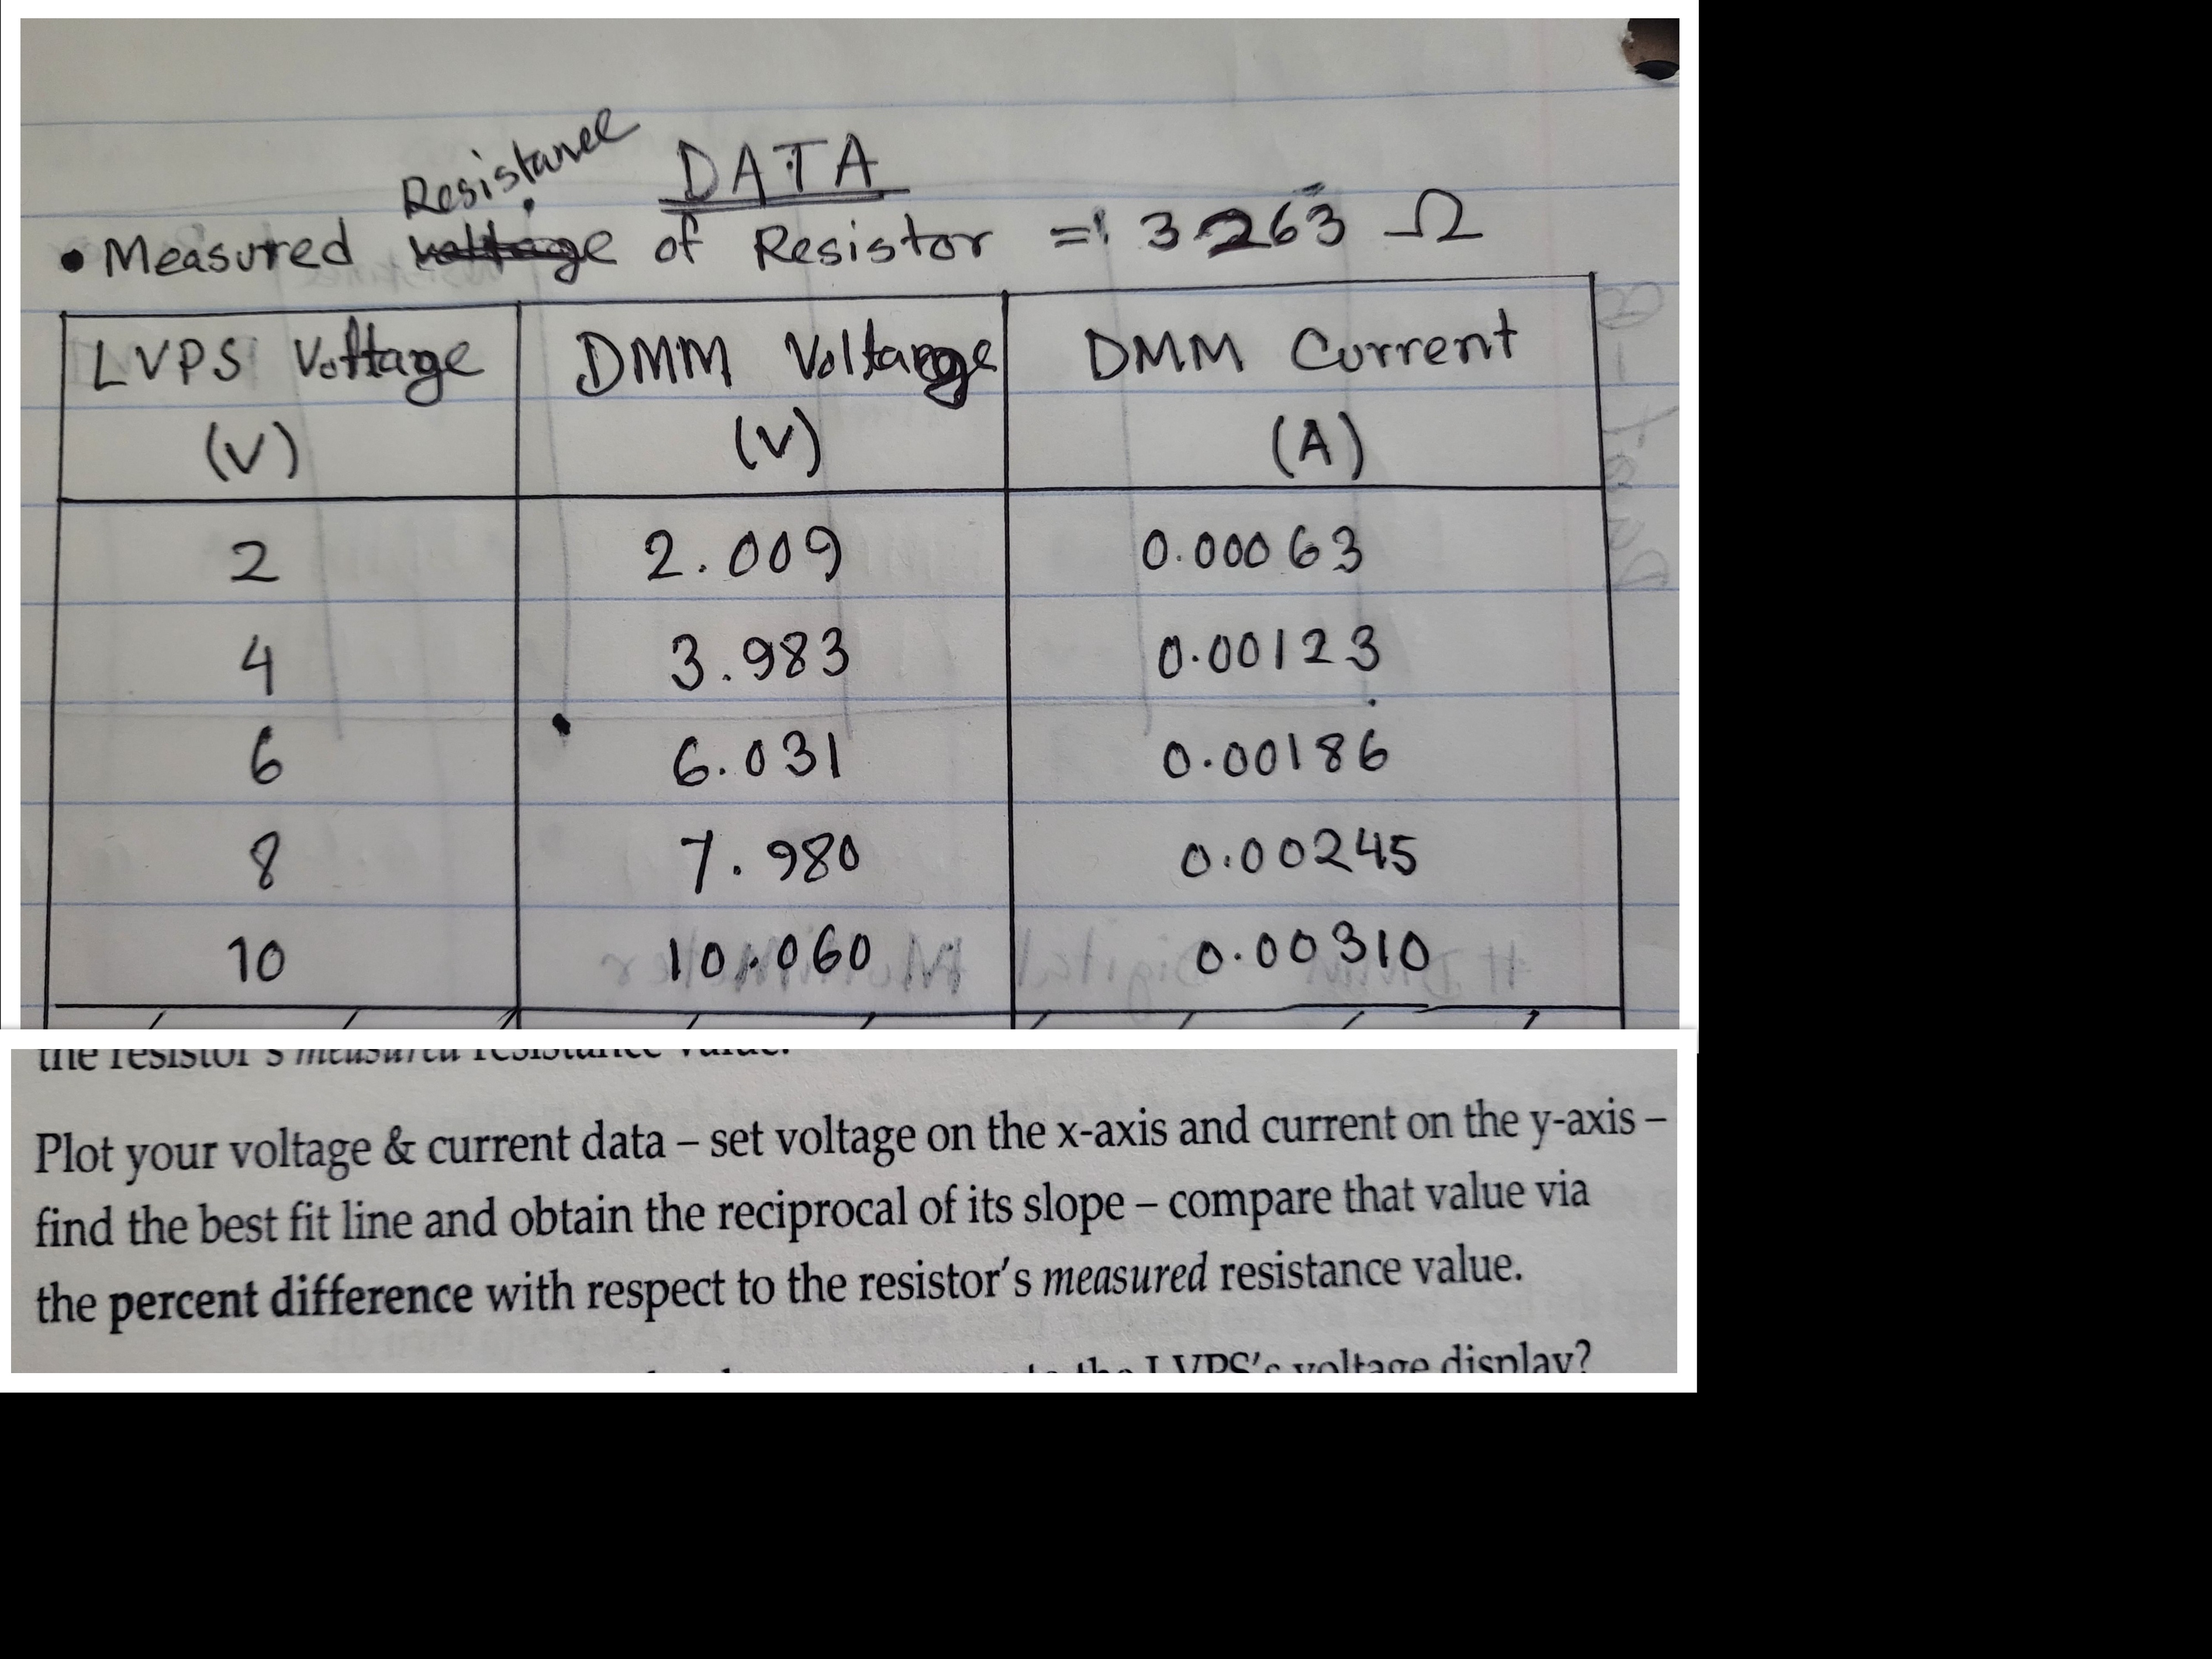 DATA
Resistance
• Measured voltage of Resistor = 3263 Ω
LVPS Voltage (V) DMM Voltange (V) DMM Current (A)
2 2.009 0.00063
4 3.983 0.00123
6 6.031 0.00186
8 7.980 0.00245
10 10.060 0.00310
the resistor's measured resistance value.
Plot your voltage & current data – set voltage on the x-axis and current on the y-axis –
find the best fit line and obtain the reciprocal of its slope – compare that value via
the percent difference with respect to the resistor's measured resistance value.
to the LVPS's voltage display?